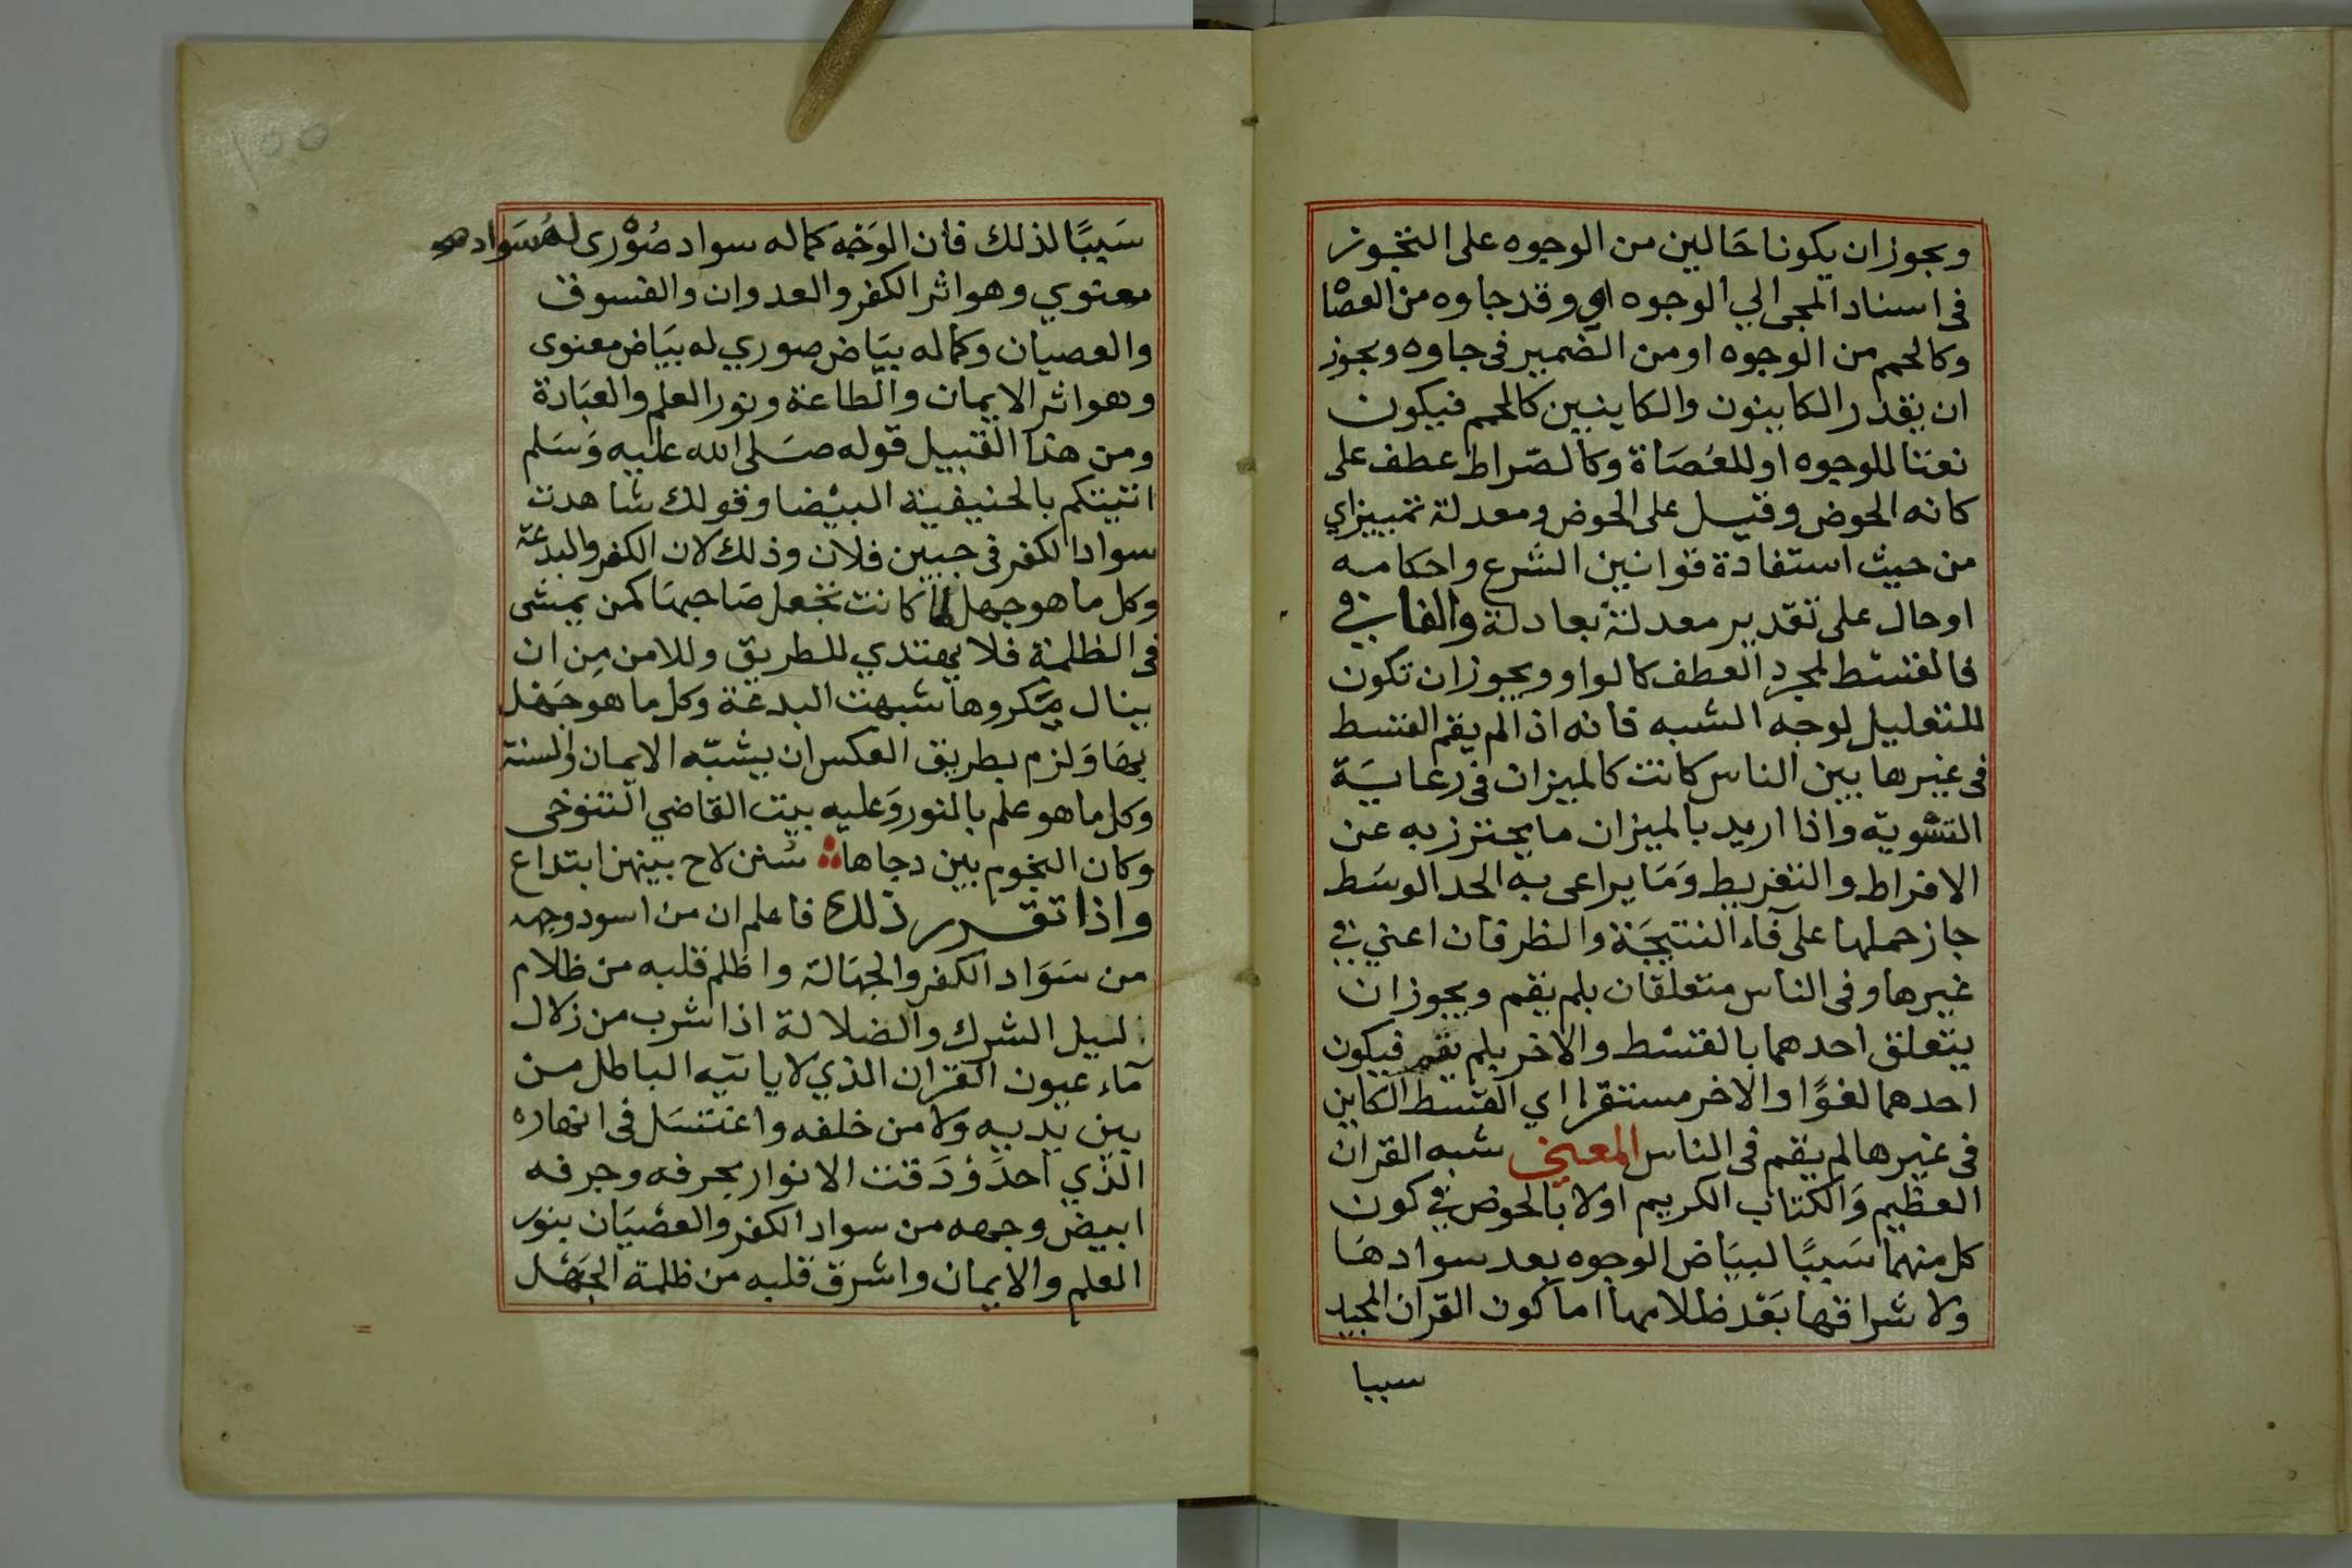 ويجوز ان يكونا حَالين من الوجوه على التجوز
في اسناد المجى الي الوجوه اي وقد جاوه من العصا
وكالحمم من الوجوه او من الضمير فى جاوه ويجوز
ان يقدر الكاينون والكاينين كالحمم فيكون
نعتا للوجوه او للعُصَاة وكالصّراط عطف على
كانه الحوض وقيل على الحوض ومعدلة تمييزاي
من حيث استفادة قوانين الشرع واحكامه
او حال على تقدير معدلة بعادلة والفا في
فالقسْط لمجرد العطف كالواو ويجوز ان تكون
للتعليل لوجه الشبه فانه اذا لم يقم القسط
فى غيرها بين الناس كانت كالميزان فى رعايَة
التسْويه واذا اريد بالميزان ما يحترز به عن
الافراط والتفريط وَمَا يراعى به الحد الوسَط
جاز حملها على فآء النتيجَة والظرفان اعني في
غيرها وفى الناس متعلقان بلم يقم ويجوز ان
يتعلق احدهما بالقسْط والاخر بلم يقم فيكون
احدهما لغوًا والاخر مستقرا اي القسط الكاين
فى غيرها لم يقم فى الناس المعنى شبه القران
العظيم وَالكتاب الكريم اولا بالحوض في كون
كل منهما سَببًا لبيَاض الوجوه بعد سوادهَا
ولاشراقها بَعْد ظلامها اما كون القران المجيد
سببا
١٥٥
سَببًا لذلك فان الوَجْه كما له سواد صُوْرى له سَواد
معنوي وهو اثر الكفر والعدوان والفسوق
والعصيان وكما له بيَاض صوري له بيَاض معنوى
وهو اثر الايمان والطاعة ونور العلم والعبَادة
ومن هذا القبيل قوله صَلى الله عليه وَسَلم
اتيتكم بالحنيفية البيْضا وقولك شاهدت
سواد الكفر فى جبين فلان وذلك لان الكفر والبدعة
وكل ما هو جهل لما كانت تجعل صَاحبهَا كمن يمشى
فى الظلمة فلا يهتدي للطريق وللامن مِن ان
ينال مكروها شبهت البدعة وكل ما هو جَهْل
بهَا وَلزم بطريق العكس ان يشبّه الايمان والسنة
وكل ما هو علم بالنور وَعليه بيت القاضي التنوخى
وكان النجوم بين دجاها سُنن لاح بينهن ابتداع
واذا تقرر ذلك فاعلم ان من اسود وجهه
من سَوَاد الكفر والجهَالة واظلم قلبه من ظلام
ليل الشرك والضلالة اذا شرب من زلال
مَاء عيون القران الذي لا ياتيه الباطل من
بين يديه وَلا من خلفه واغتسَل فى انهاره
الذي احدَ وْدَقت الانوار بحرفه وجرفه
ابيض وجهه من سواد الكفر والعصْيَان بنور
العلم والايمان واشرق قلبه من ظلمة الجَهْل